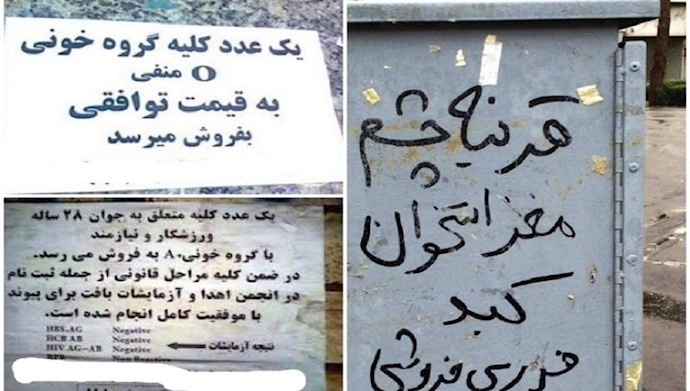 یک عدد کلیه گروه خونی
O منفی
به قیمت توافقی
بفروش میرسد
یک عدد کلیه متعلق به جوان ۲۸ ساله
ورزشکار و نیازمند
با گروه خونی A۰ به فروش می رسد.
در ضمن کلیه مراحل قانونی از جمله ثبت نام
در انجمن اهدا و آزمایشات بافت برای پیوند
با موفقیت کامل انجام شده است.
HBS.AG Negative
HCB AB Negative
HIV AG-AB Negative نتیجه آزمایشات
قرنیه چشم
مغز استخوان
کبد
فوری فروشی